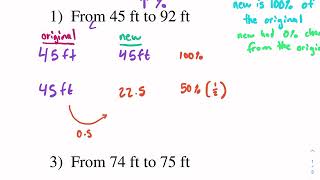 1%
1) From 45 ft to 92 ft
new is 100% of
the original
new had 0% cha
from the origin
original new
45ft 45ft 100%
45ft 22.5 50% (1/2)
0.5
3) From 74 ft to 75 ft